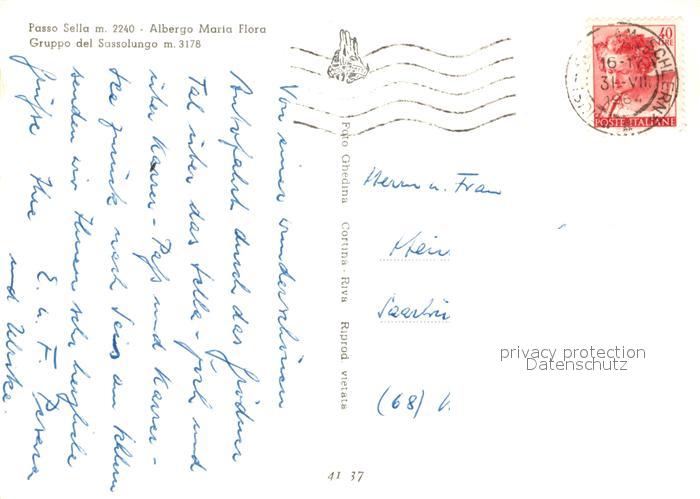 Passo Sella m. 2240 - Albergo Maria Flora
Gruppo del Sassolungo m. 3178
Von einer wunderschönen
Autofahrt durch das Grödner
Tal über das Sella-Joch und
über Karrer-Paß und Karrer-
See zurück nach Seis am Schlern
senden wir Ihnen sehr herzliche
Grüße Ihre E. u. F.
und Ulrike.
Foto Ghedina Cortina - Riva Riprod. vietata
Herrn u. Frau
Hein
Saarbrü
(68)
privacy protection
Datenschutz
41 37
40
LIRE
SCHLERN
16-17
31-VII
POSTE ITALIANE